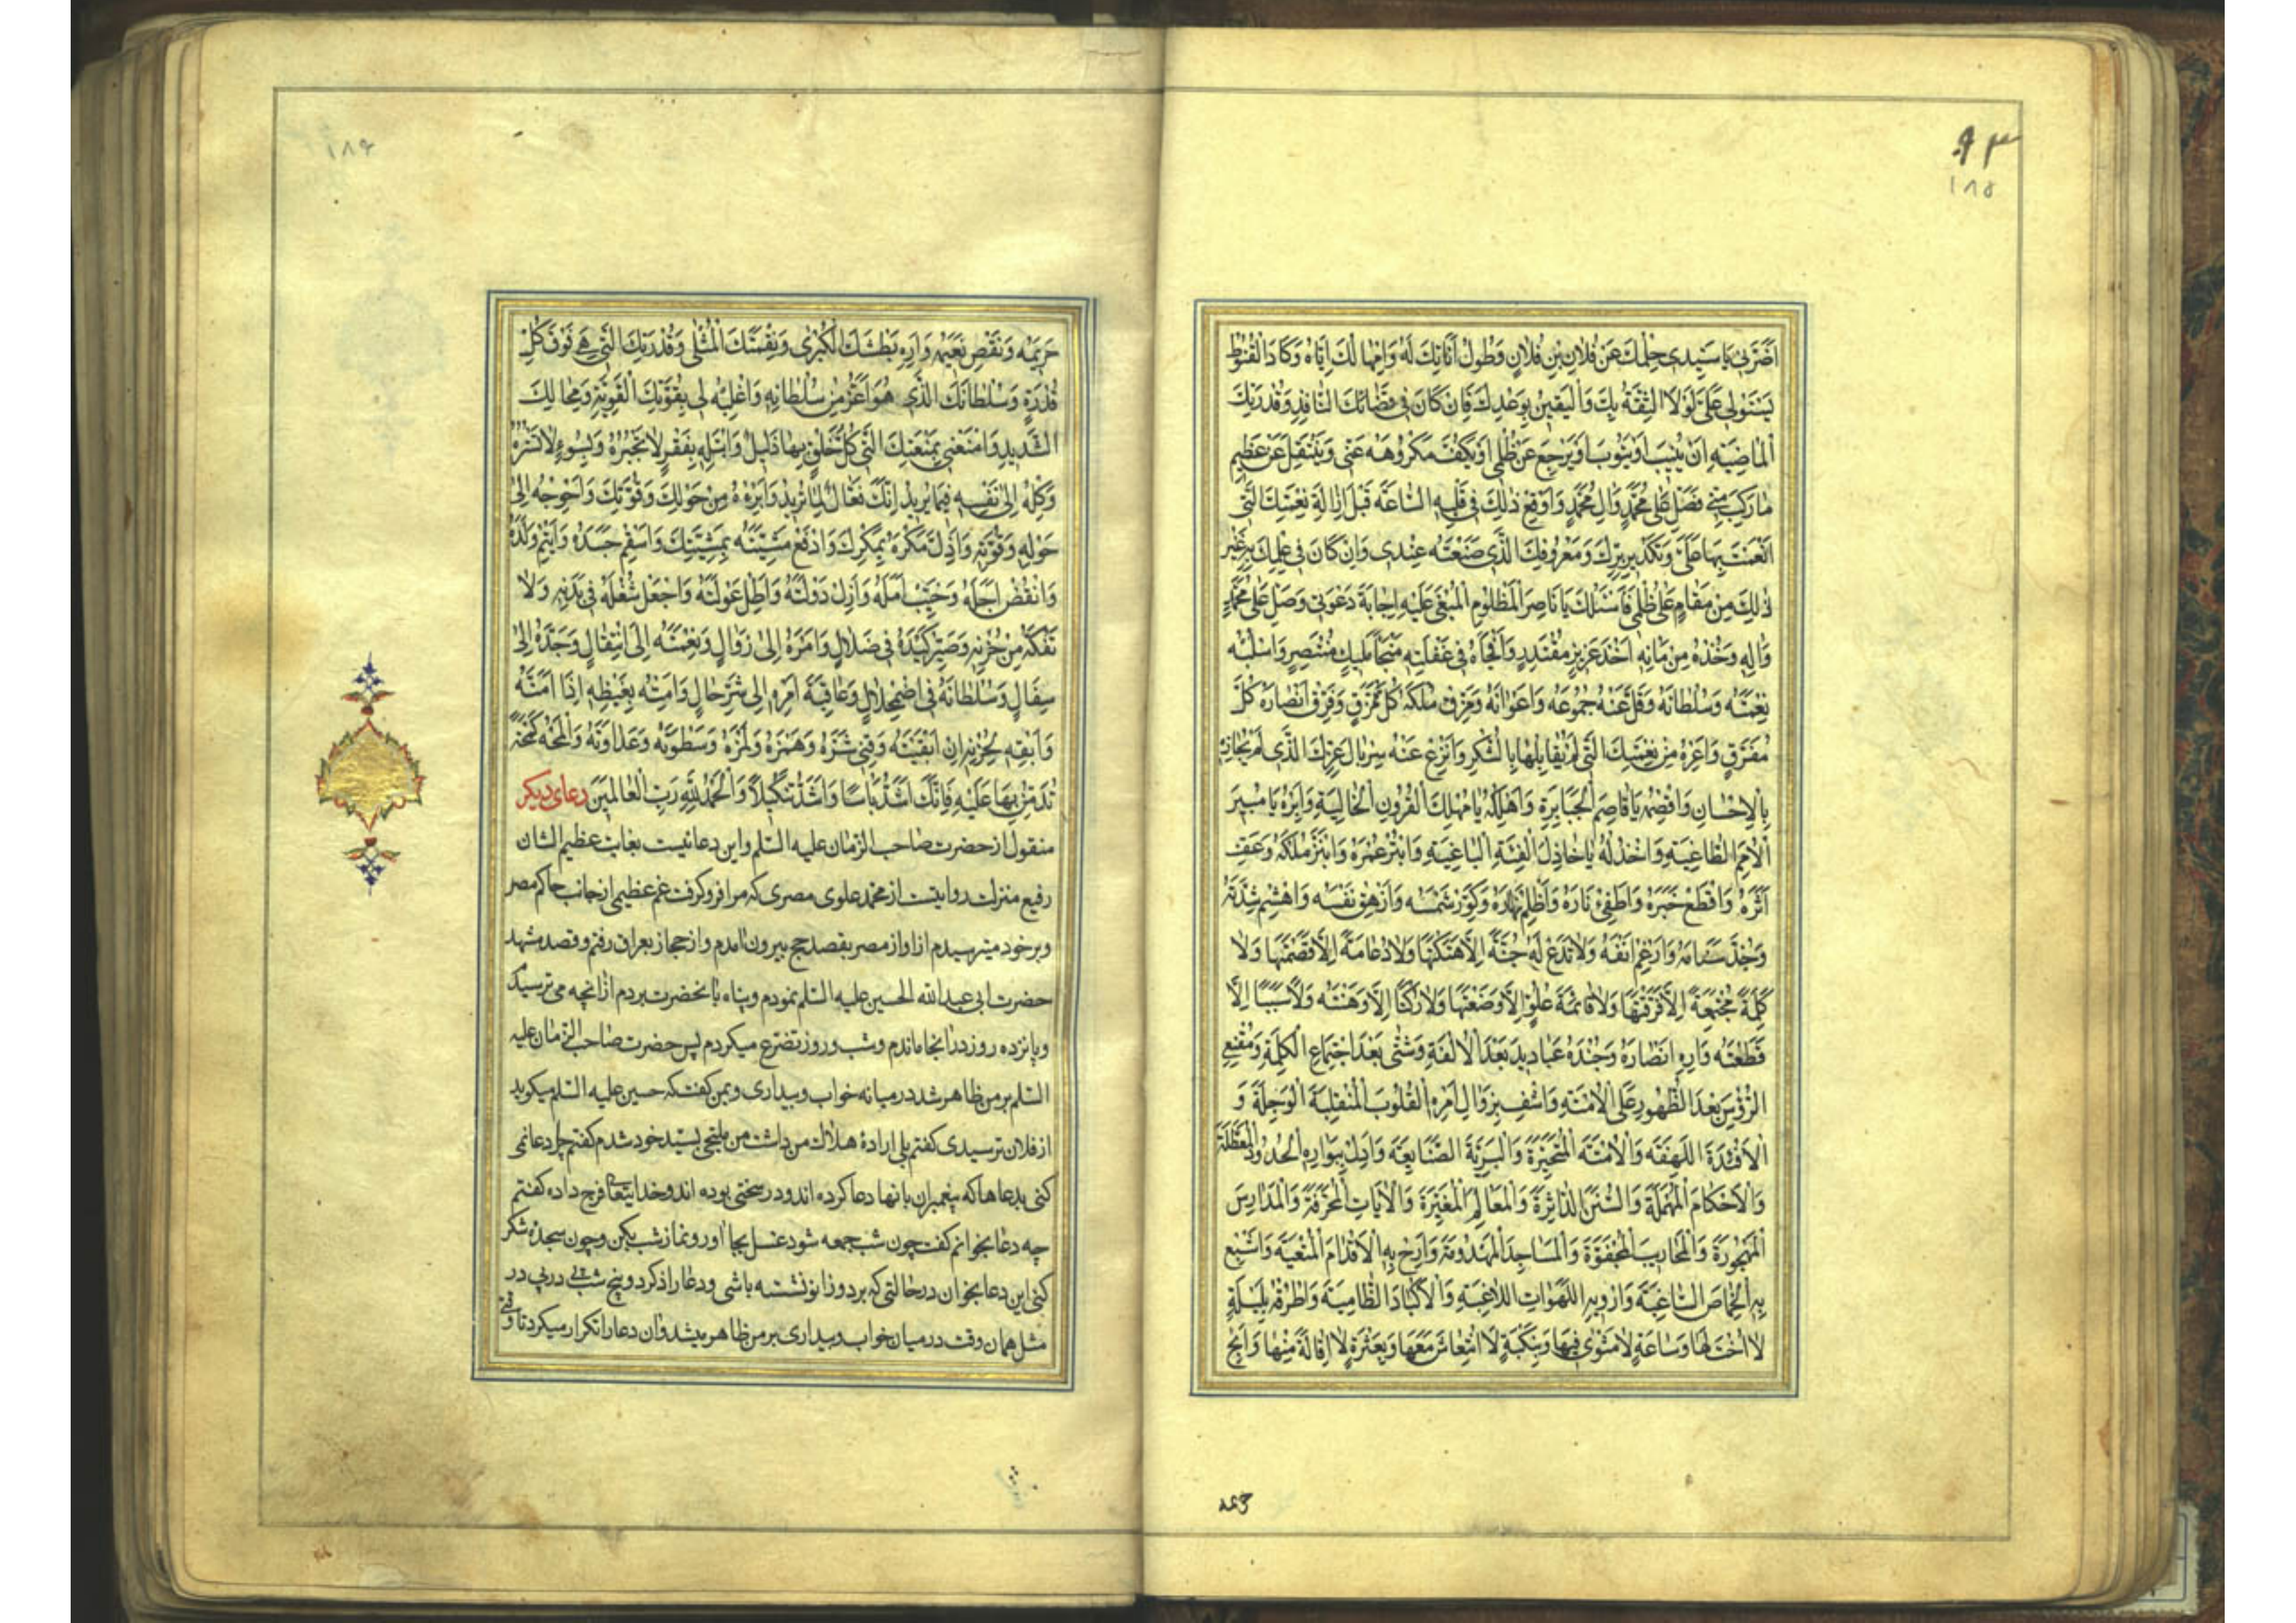 ٩٣
١٨٥
اَضَرَّ بی یا سَیِّدی حِلْمُکَ عَنْ فُلانِ بْنِ فُلانٍ وَطُولُ اَناتِکَ لَهُ وَاِمْهالُکَ اِیّاهُ وَکادَ الْقُنُوطُ
یَسْتَوْلی عَلَیَّ لَوْلَا الثِّقَةُ بِکَ وَالْیَقینُ بِوَعْدِکَ فَاِنْ کانَ فی قَضائِکَ النّافِذِ وَقُدْرَتِکَ
الْماضِیَةِ اَنْ یُنیبَ اَوْ یَتُوبَ اَوْ یَرْجِعَ عَنْ ظُلْمی اَوْ یَکُفَّ مَکْرُوهَهُ عَنّی وَیَنْتَقِلَ عَنْ عَظیمِ
ما رَکِبَ مِنّی فَصَلِّ عَلی مُحَمَّدٍ وَالِ مُحَمَّدٍ وَاَوْقِعْ ذلِکَ فی قَلْبِهِ السّاعَةَ قَبْلَ اِزالَةِ نِعْمَتِکَ الَّتی
اَنْعَمْتَ بِها عَلَیَّ وَتَکْدیرِ بِرِّکَ وَمَعْرُوفِکَ الَّذی صَنَعْتَهُ عِنْدی وَاِنْ کانَ فی عِلْمِکَ بِهِ غَیْرَ
ذلِکَ مِنْ مَقامٍ عَلی ظُلْمی فَاَسْئَلُکَ یا ناصِرَ الْمَظْلُومِ الْمَبْغِیِّ عَلَیْهِ اِجابَةَ دَعْوَتی وَصَلِّ عَلی مُحَمَّدٍ
وَالِهِ وَخُذْهُ مِنْ مَاْمَنِهِ اَخْذَ عَزیزٍ مُقْتَدِرٍ وَافْجَاْهُ فی غَفْلَتِهِ مُفاجاةَ مَلیکٍ مُنْتَصِرٍ وَاسْلُبْهُ
نِعْمَتَهُ وَسُلْطانَهُ وَفُلَّ عَنْهُ جُمُوعَهُ وَاَعْوانَهُ وَمَزِّقْ مُلْکَهُ کُلَّ مُمَزَّقٍ وَفَرِّقْ اَنْصارَهُ کُلَّ
مُفَرَّقٍ وَاَعِرْهُ مِنْ نِعْمَتِکَ الَّتی لَمْ یُقابِلْها بِالشُّکْرِ وَانْزِعْ عَنْهُ سِرْبالَ عِزِّکَ الَّذی لَمْ یُجازِهِ
بِالْاِحْسانِ وَاقْصِمْهُ یا قاصِمَ الْجَبابِرَةِ وَاَهْلِکْهُ یا مُهْلِکَ الْقُرُونِ الْخالِیَةِ وَاَبِرْهُ یا مُبیرَ
الْاُمَمِ الطّاغِیَةِ وَاخْذُلْهُ یا خاذِلَ الْفِئَةِ الْباغِیَةِ وَابْتُرْ عُمْرَهُ وَابْتَزَّ مُلْکَهُ وَعَفِّ
اَثَرَهُ وَاقْطَعْ خَبَرَهُ وَاَطْفِیءْ نارَهُ وَاَظْلِمْ نَهارَهُ وَکَوِّرْ شَمْسَهُ وَاَزْهِقْ نَفْسَهُ وَاهْشِمْ شِدَّتَهُ
وَجُذَّ سَنامَهُ وَاَرْغِمْ اَنْفَهُ وَلا تَدَعْ لَهُ جُنَّةً اِلّا هَتَکْتَها وَلا دُعامَةً اِلّا قَصَمْتَها وَلا
کَلِمَةً مُجْتَمِعَةً اِلّا فَرَّقْتَها وَلا قائِمَةَ عُلُوٍّ اِلّا وَضَعْتَها وَلا رُکْناً اِلّا وَهَنْتَهُ وَلا سَبَباً اِلّا
قَطَعْتَهُ وَاَرِهِ اَنْصارَهُ وَجُنْدَهُ عَبادیدَ بَعْدَ الْاُلْفَةِ وَشَتّی بَعْدَ اجْتِماعِ الْکَلِمَةِ وَمُقْنِعِی
الرُّؤُسِ بَعْدَ الظُّهُورِ عَلَی الْاُمَّةِ وَاشْفِ بِزَوالِ اَمْرِهِ الْقُلُوبَ الْمُنْقَلِبَةَ الْوَجِلَةَ وَ
الْاَفْئِدَةَ اللَّهِفَةَ وَالْاُمَّةَ الْمُتَحَیِّرَةَ وَالْبَرِیَّةَ الضّایِعَةَ وَاَدِلْ بِبَوارِهِ الْحُدُودَ الْمُعَطَّلَةَ
وَالْاَحْکامَ الْمُهْمَلَةَ وَالسُّنَنَ الدّاثِرَةَ وَالْمَعالِمَ الْمُغَیَّرَةَ وَالْایاتِ الْمُحَرَّفَةَ وَالْمَدارِسَ
الْمَهْجُورَةَ وَالْمَحاریبَ الْمَجْفُوَّةَ وَالْمَساجِدَ الْمَهْدُومَةَ وَاَرِحْ بِهِ الْاَقْدامَ الْمُتْعَبَةَ وَاَشْبِعْ
بِهِ الْخِماصَ السّاغِبَةَ وَاَرْوِ بِهِ اللَّهَواتِ اللّاغِبَةَ وَالْاَکْبادَ الظّامِیَةَ وَاطْرُقْهُ بِلَیْلَةٍ
لا اُخْتَ لَها وَساعَةٍ لا مَثْوی فیها وَبِنَکْبَةٍ لَا انْتِعاشَ مَعَها وَبِعَثْرَةٍ لا اِقالَةَ مِنْها وَاَبِحْ
١٨۶
حَریمَهُ وَنَغِّصْ نَعیمَهُ وَاَرِهِ بَطْشَتَکَ الْکُبْری وَنِقْمَتَکَ الْمُثْلی وَقُدْرَتَکَ الَّتی هِیَ فَوْقَ کُلِّ
قُدْرَةٍ وَسُلْطانَکَ الَّذی هُوَ اَعَزُّ مِنْ سُلْطانِهِ وَاغْلِبْهُ لی بِقُوَّتِکَ الْقَوِیَّةِ وَمِحالِکَ
الشَّدیدِ وَامْنَعْنی بِمَنْعَتِکَ الَّتی کُلُّ خَلْقٍ فیها ذَلیلٌ وَابْتَلِهِ بِفَقْرٍ لا تَجْبُرُهُ وَبِسُوءٍ لا تَسْتُرُهُ
وَکِلْهُ اِلی نَفْسِهِ فیما یُریدُ اِنَّکَ فَعّالٌ لِما تُریدُ وَاَبْرِءْهُ مِنْ حَوْلِکَ وَقُوَّتِکَ وَاَحْوِجْهُ اِلی
حَوْلِهِ وَقُوَّتِهِ وَاَذِلَّ مَکْرَهُ بِمَکْرِکَ وَادْفَعْ مَشِیَّتَهُ بِمَشِیَّتِکَ وَاَسْقِمْ جَسَدَهُ وَاَیْتِمْ وَلَدَهُ
وَانْقُضْ اَجَلَهُ وَخَیِّبْ اَمَلَهُ وَاَزِلْ دَوْلَتَهُ وَاَطِلْ عَوْلَتَهُ وَاجْعَلْ شُغْلَهُ فی بَدَنِهِ وَلا
تَفُکَّهُ مِنْ حُزْنِهِ وَصَیِّرْ کَیْدَهُ فی ضَلالٍ وَاَمْرَهُ اِلی زَوالٍ وَنِعْمَتَهُ اِلَی انْتِقالٍ وَجَدَّهُ اِلی
سِفالٍ وَسُلْطانَهُ فی اضْمِحْلالٍ وَعاقِبَةَ اَمْرِهِ اِلی شَرِّ حالٍ وَاَمِتْهُ بِغَیْظِهِ اِذا اَمَتَّهُ
وَاَبْقِهِ بِحُزْنِهِ اِنْ اَبْقَیْتَهُ وَقِنی شَرَّهُ وَهَمْزَهُ وَلَمْزَهُ وَسَطْوَتَهُ وَعَداوَتَهُ وَالْمَحْهُ لَمْحَةً
تُدَمِّرُ بِها عَلَیْهِ فَاِنَّکَ اَشَدُّ بَاْساً وَاَشَدُّ تَنْکیلاً وَالْحَمْدُ لِلّهِ رَبِّ الْعالَمینَ دعای دیکر
منقول از حضرت صاحب الزمان علیه السّلم واین دعائیست بغایت عظیم الشان
رفیع منزلت روایتست از محمد علوی مصری که مرا فرو کرفت غم عظیمی از جانب حاکم مصر
وبر خود میترسیدم ازاو از مصر بقصد حج بیرون امدم واز حجاز بعراق رفتم وقصد مشهد
حضرت ابی عبدالله الحسین علیه السّلم نمودم وپناه بآنحضرت بردم ازانچه می ترسیدم
وپانزده روز درانجا ماندم وشب وروز تضرع میکردم پس حضرت صاحب الزمان علیه
السّلم بر من ظاهر شد در میانه خواب وبیداری وبمن کفت که حسین علیه السّلم میکوید
از فلان ترسیدی کفتم بلی ارادهٔ هلاک من داشت من ملتجی بسیّد خود شدم کفتم چرا دعا نمی
کنی بدعاها که پیغمبران بآنها دعا کرده اند ودر سختی بوده اند وخدایتعالی فرج داده کفتم
چه دعا بخوانم کفت چون شب جمعه شود غسل بجا اور ونماز شب بکن وچون سجدهٔ شکر
کنی این دعا بخوان در حالتی که بر دوزانو نشسته باشی ودعا را ذکر کرد وپنج شب پی در پی در
مثل همان وقت در میان خواب وبیداری بر من ظاهر میشد وان دعا را تکرار میکرد تا وقتی